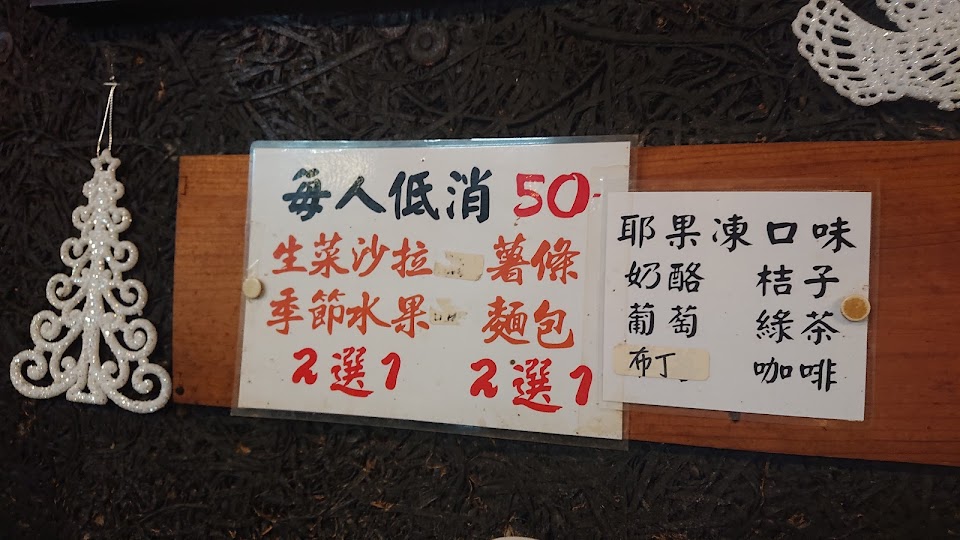 每人低消 50-
生菜沙拉 薯條
季節水果 麵包
2選1 2選1
耶果凍口味
奶酪 桔子
葡萄 綠茶
布丁 咖啡